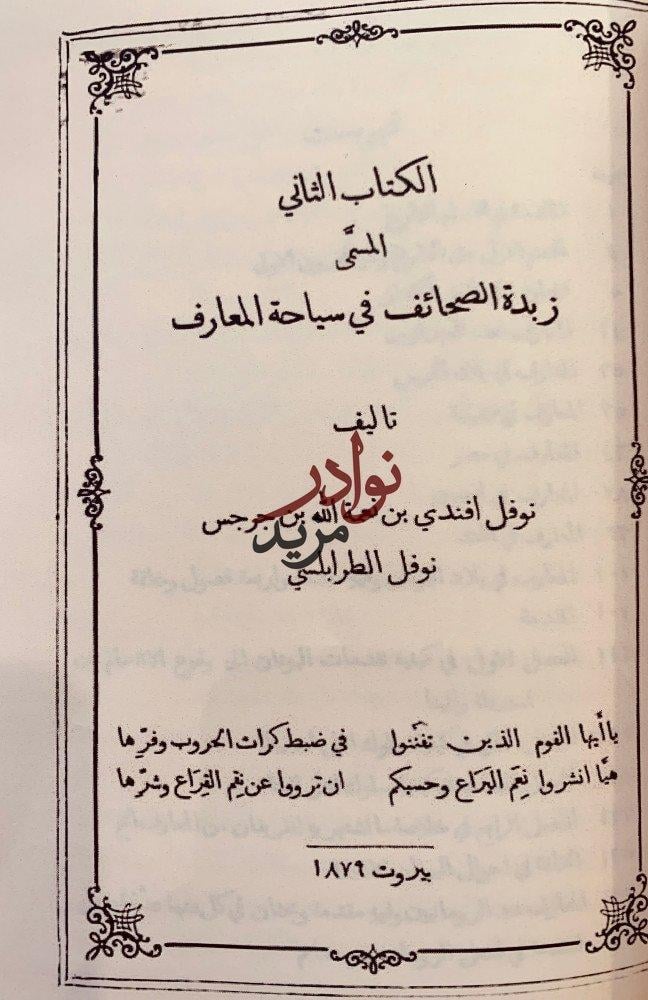 الكتاب الثاني
المسمَّى
زبدة الصحائف في سياحة المعارف
تاليف
نوفل افندي بن نعمة الله بن جرجس
نوفل الطرابلسي
يا أيها القوم الذين تفننوا في ضبط كرات الحروب وفرّها
هيَّا انشروا نِعَم اليَراع وحسبكم ان ترووا عن نِقَم القِراع وشرّها
بيروت ١٨٧٩
نوادر
مزيد